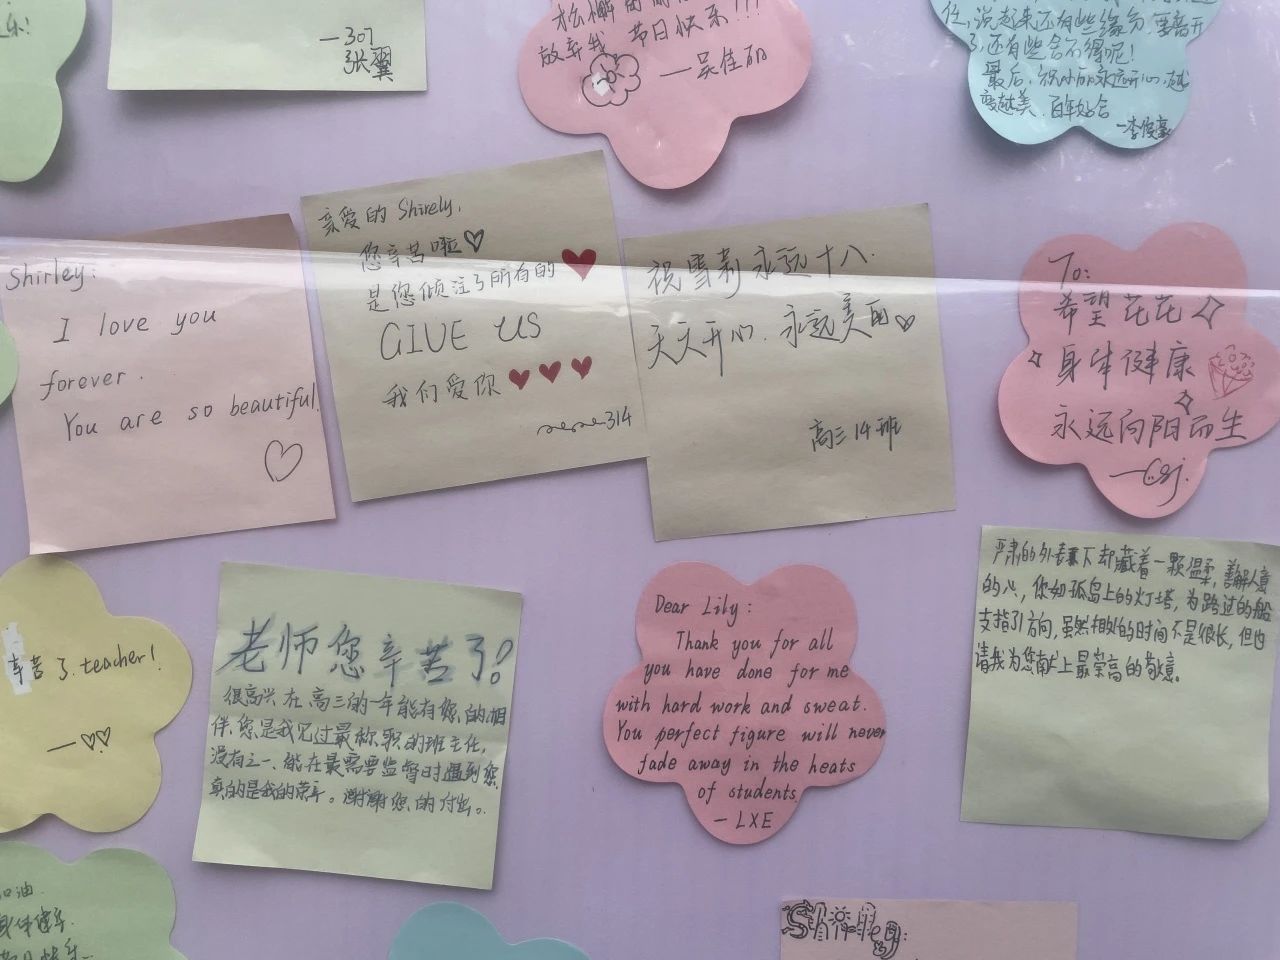 乐!
一307
张翼
放弃我 节日快乐!!!
——吴佳
位,说起来还有些缘分,要离开
了,还有些舍不得呢!
最后,祝 永远开心,越
变越美,百年好合
-李俊豪
Shirley:
I love you
forever.
You are so beautiful.
亲爱的 Shirely,
您辛苦啦
是您倾注了所有的
GIVE US
我们爱你
314
祝雪莉永远十八.
天天开心.永远美丽
高三14班
To:
希望花花
身体健康
永远向阳而生
辛苦了.teacher!
老师您辛苦了!
很高兴在高三的一年能有您的相
伴.您是我见过最称职的班主任,
没有之一、能在最需要监督时遇到您
真的是我的荣幸。谢谢您的付出。
Dear Lily:
Thank you for all
you have done for me
with hard work and sweat.
You perfect figure will never
fade away in the heats
of students
- LXE
严肃的外表下却藏着一颗温柔,善解人意
的心,您如孤岛上的灯塔,为路过的船
支指引方向,虽然相处的时间不是很长,但也
请我为您献上最崇高的敬意。
加油
身体健康
节日快乐
Shirley: